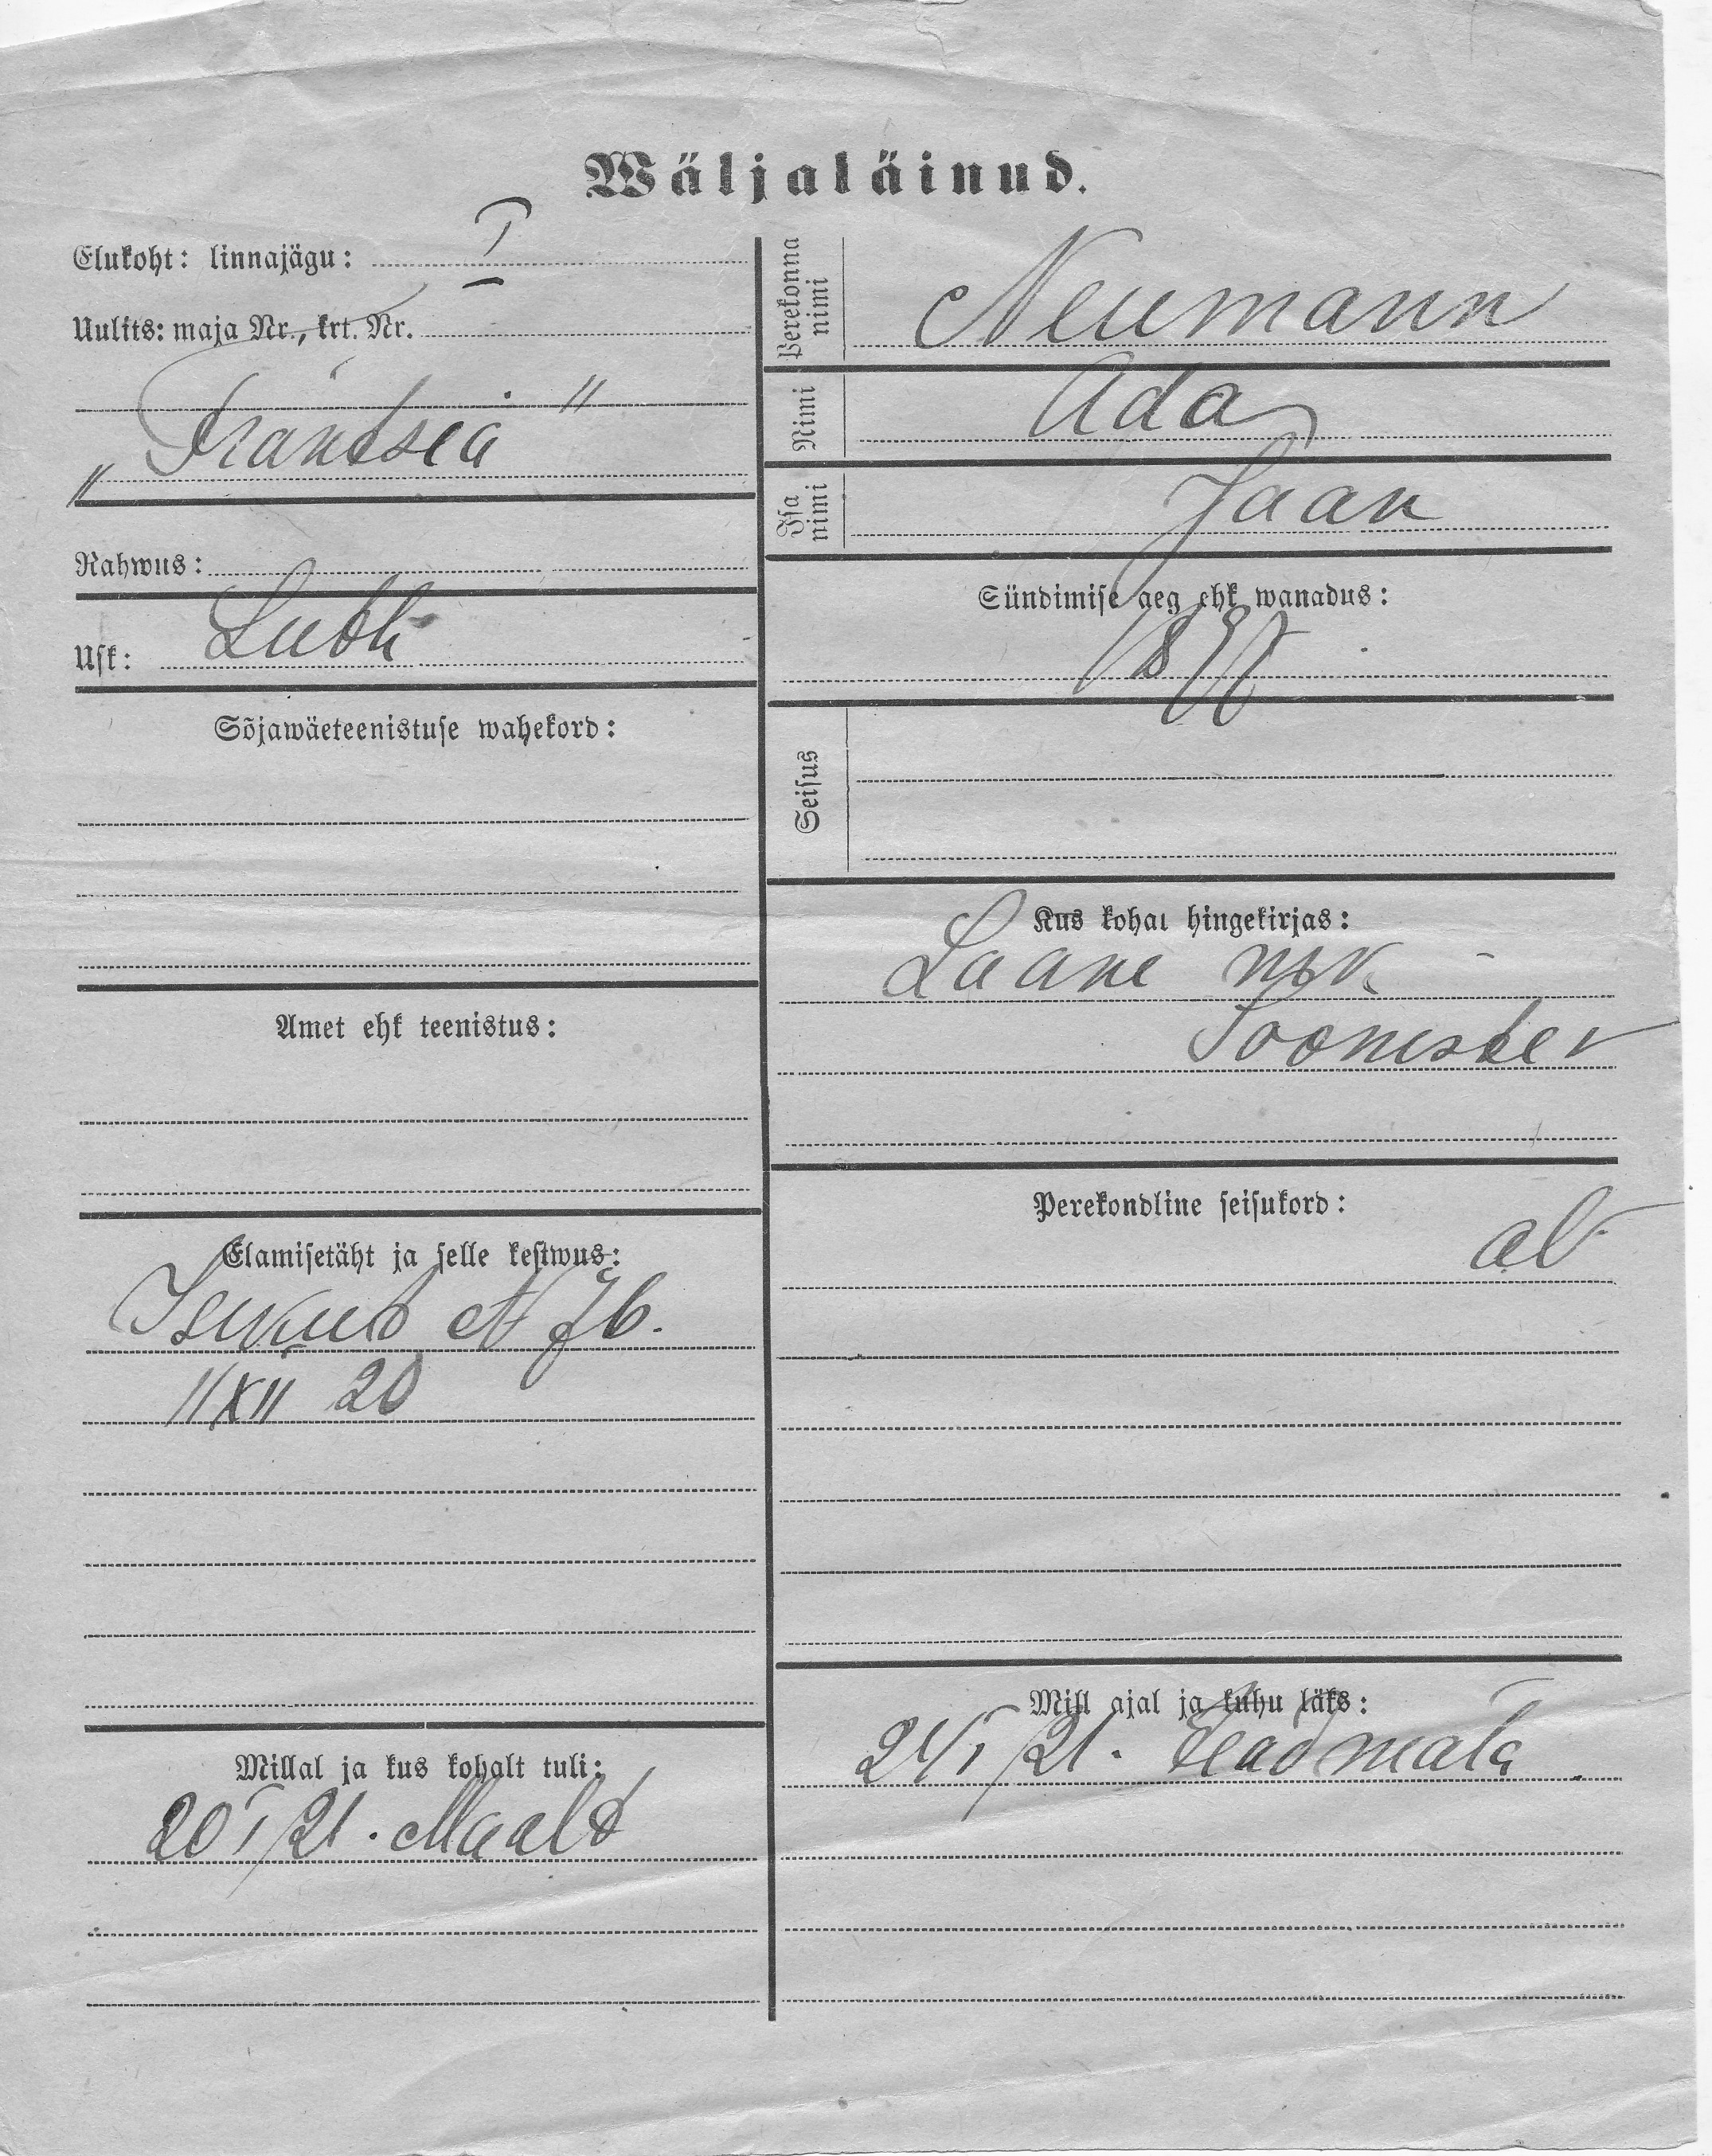 Wäljaläinud.
Elukoht: linnajägu: I
Uulits: maja Nr., krt. Nr.
„Frantsia"
Rahwus:
Usk: Luth
Sõjawäeteenistuse wahekord:
Amet ehk teenistus:
Elamisetäht ja selle kestwus:
Isikut № 76.
11/XII 20
Millal ja kus kohalt tuli:
20 I/21. Maalt
Perekonna nimi Neumann
Nimi Ada
Isa nimi Jaan
Sündimise aeg ehk wanadus:
Seisus
Kus kohal hingekirjas:
Laane
Perekondline seisukord:
Mill ajal ja kuhu läks:
24 I/21. teadmata.